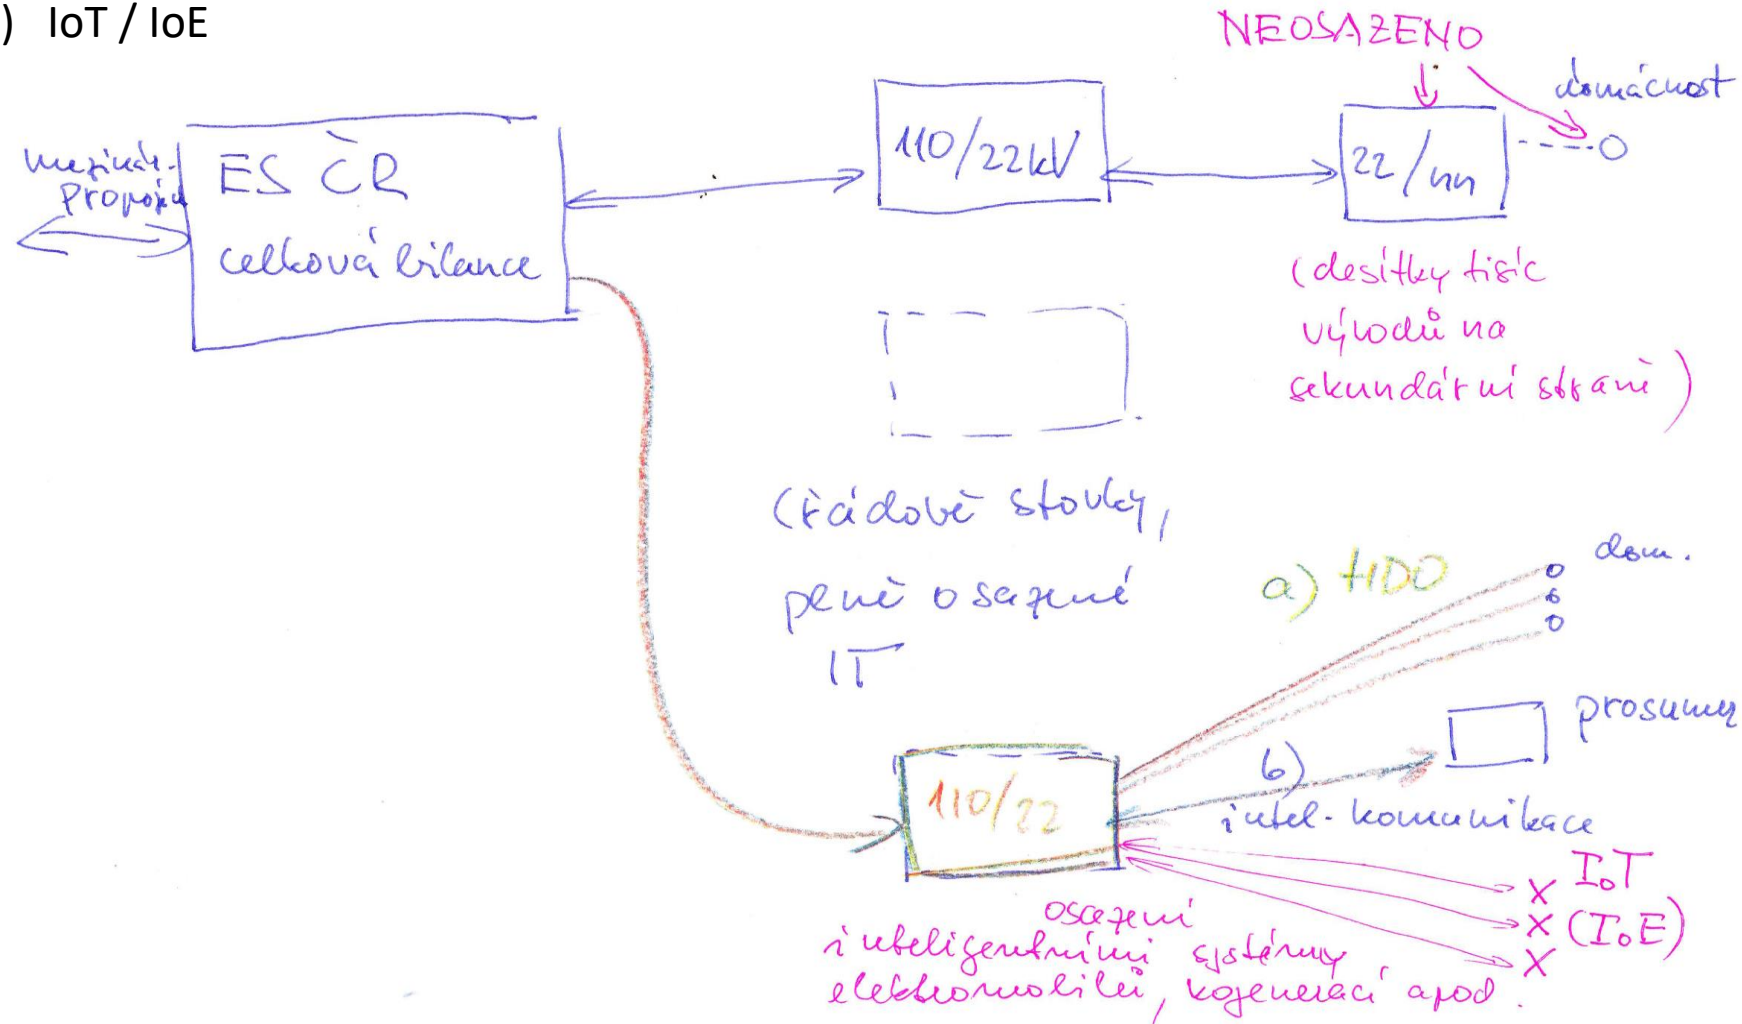 ) IoT / IoE
NEOSAZENO
domácnost
mezinár.
propoje
ES ČR
celková bilance
110/22kV
22/nn
(desítky tisíc
vývodů na
sekundární straně)
(řádově stovky,
plně osazené
IT
a) HDO
dom.
prosumer
110/22
b)
intel. komunikace
IoT
(IoE)
osazení
inteligentními systémy
elektromobilů, kogenerací apod.